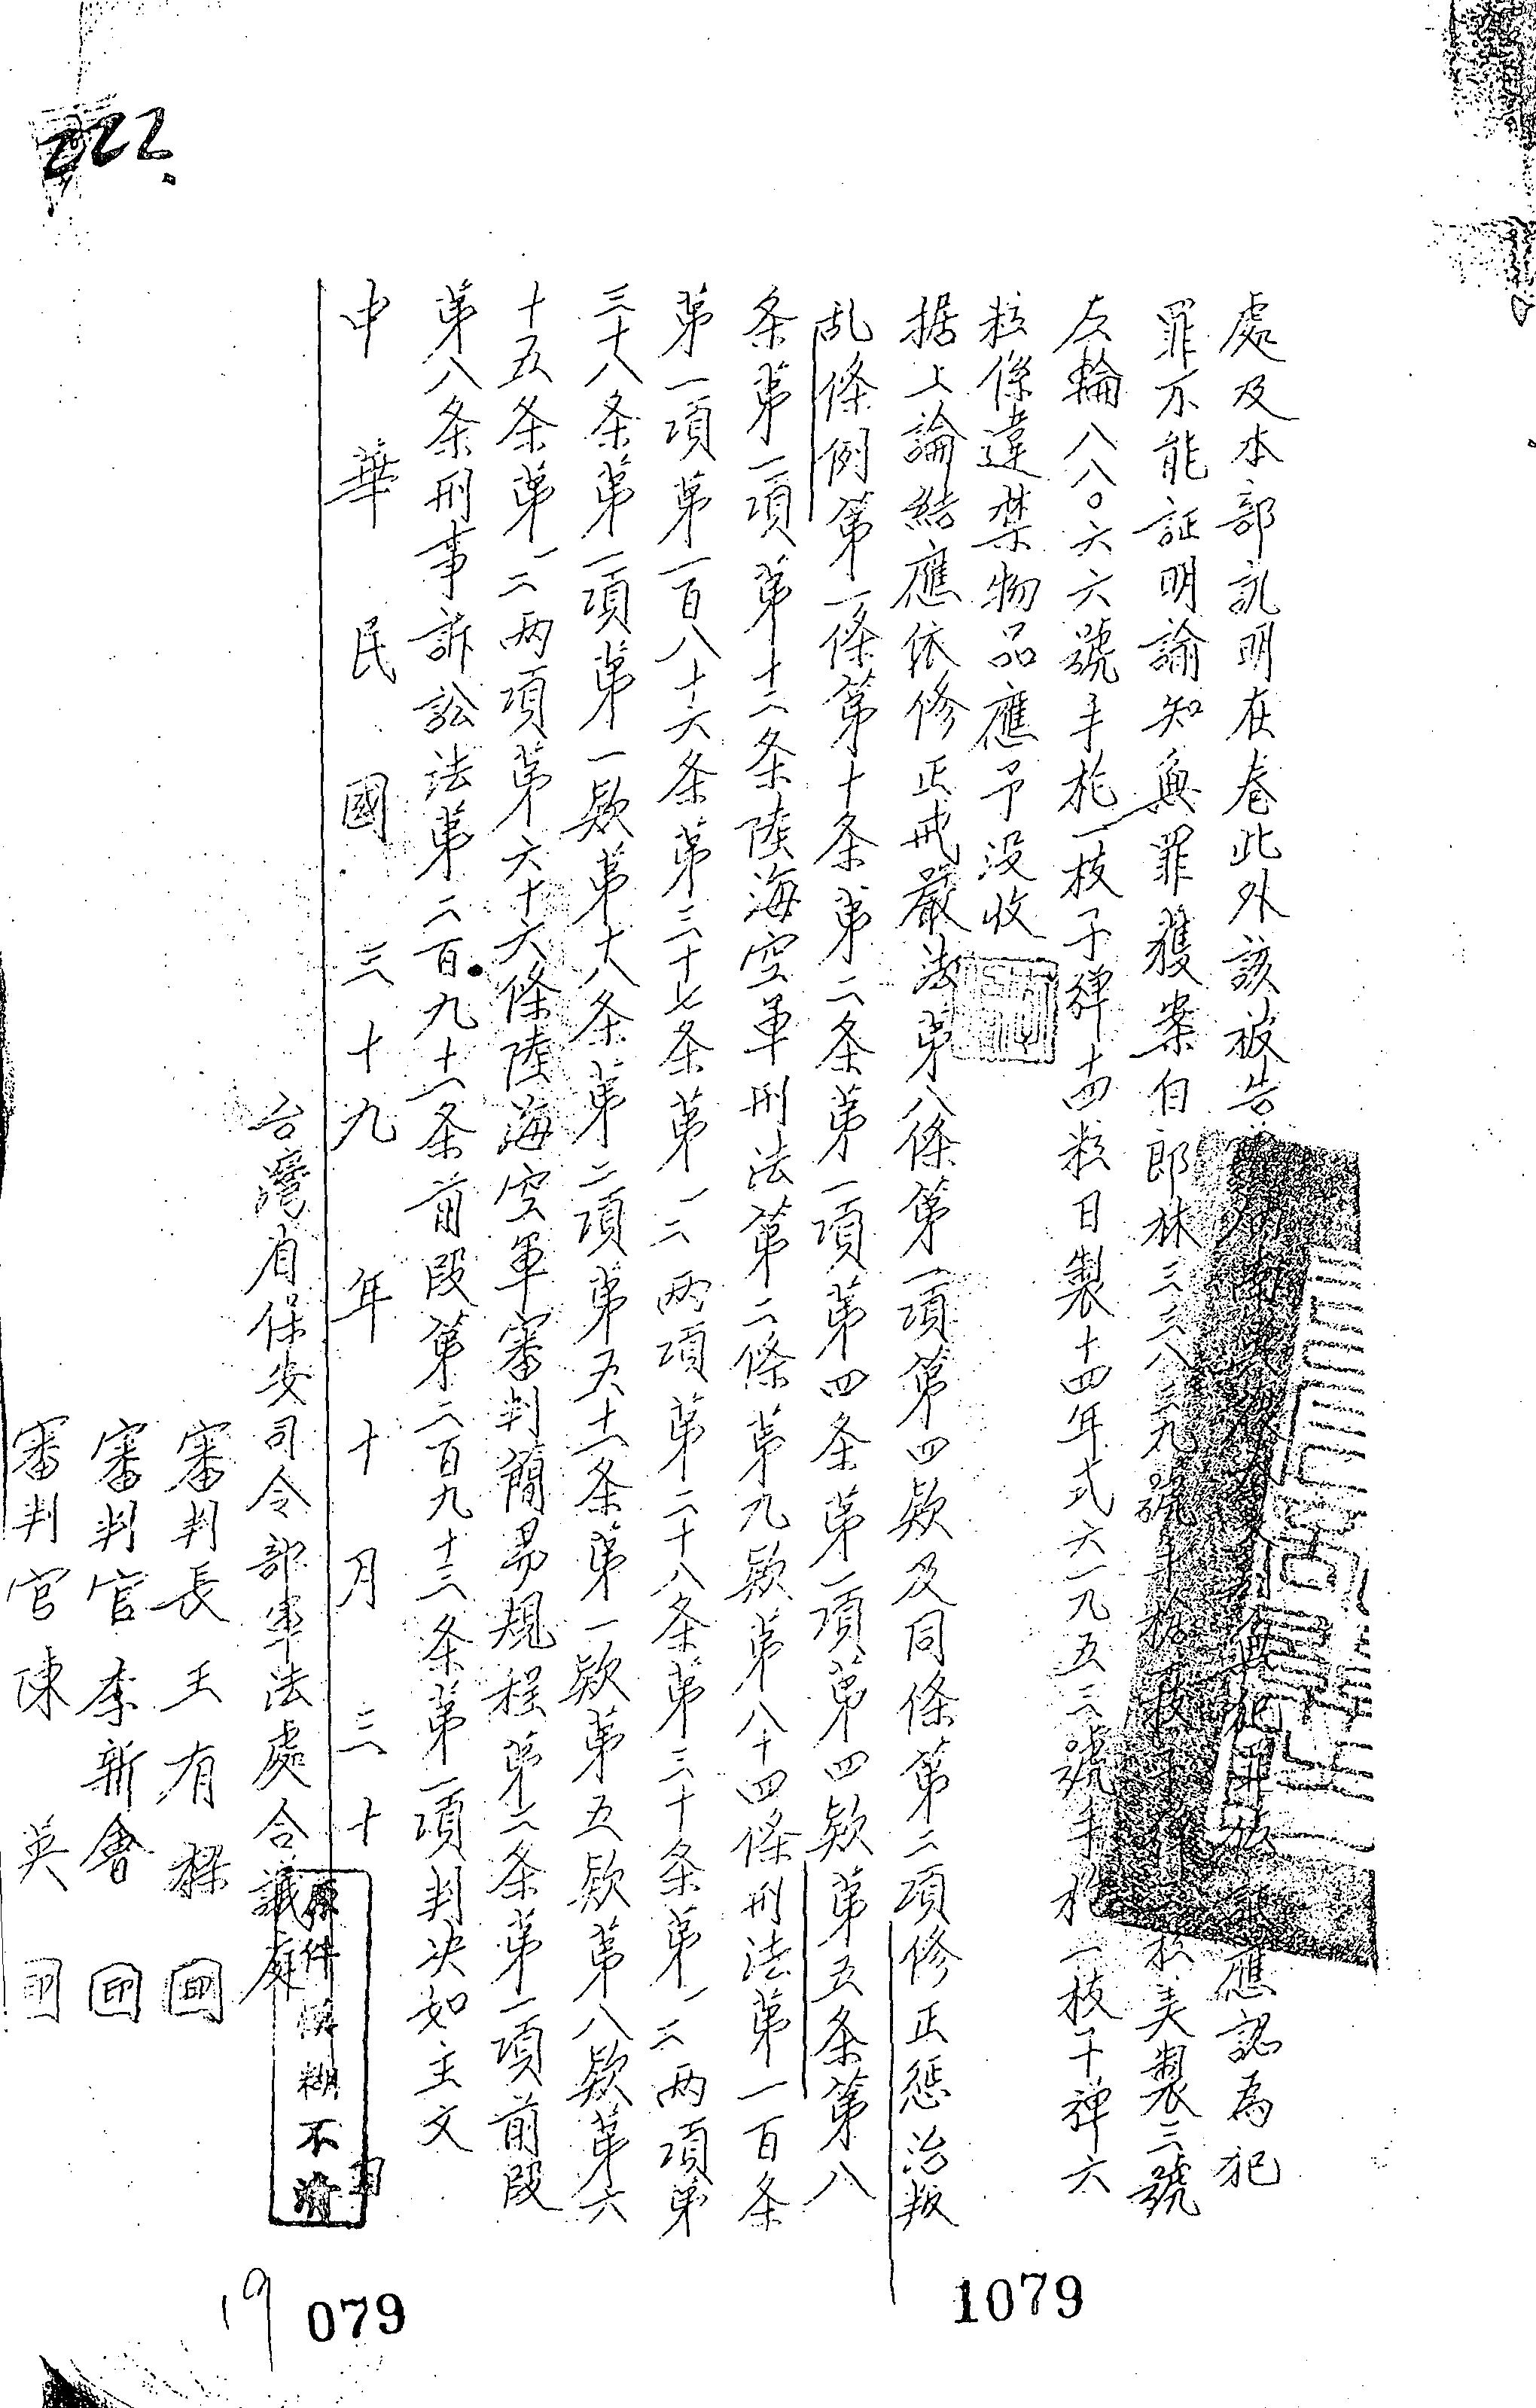 222.
處及本部訊明在卷此外該被告無犯罪應認為犯
罪不能証明諭知無罪獲案白郎林三三八三九號手槍一枝子弹 粒美製二號
左輪八八〇六六號手枪一枝子弹十四粒日製十四年式六一九五三號手枪一枝子弹六
粒係違禁物品應予没收
据上論結應依修正戒嚴法第八條第一項第四欵及同條第二項修正惩治叛
乱條例第一條第十条第二条第一項第四条第一項第四欵第五条第八
条第一項第十二条陸海空軍刑法第二條第九欵第八十四條刑法第一百条
第一項第一百八十六条第三十七条第一二两項第二十八条第三十条第一二两項第
三十八条第一項第一欵第十八条第二項第五十一条第一欵第五欵第八欵第六
十五条第一二两項第六十六條陸海空軍審判簡易規程第二条第一項前段
第八条刑事訴訟法第二百九十一条前段第二百九十三条第一項判决如主文
中華民國三十九年十月三十日
台灣省保安司令部軍法處合議庭
審判長王有樑 印
審判官李新會 印
審判官陳英 印
原件模糊不清
19
079
1079